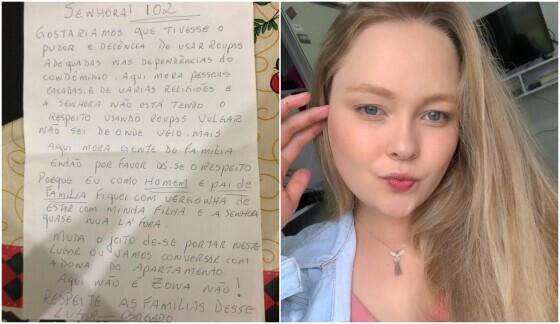 SENHORA! 102
GOSTARIAMOS QUE TIVESSE O
PUDOR E DECÊNCIA DE USAR ROUPAS
ADEQUADAS NAS DEPENDÊNCIAS DO
CONDÔMINIO. AQUI MORA PESSOAS
CASADAS, E DE VARIAS RELIGIÕES E
A SENHORA NÃO ESTÁ TENDO O
RESPEITO USANDO ROUPAS VULGAR
NÃO SEI DE ONDE VEIO. MAIS
AQUI MORA GENTE DE FAMILIA
ENTÃO POR FAVOR DÊ-SE O RESPEITO
PORQUE EU COMO HOMEM E PAI DE
FAMILIA FIQUEI COM VERGONHA DE
ESTAR COM MINHA FILHA E A SENHORA
QUASE NUA LÁ FORA.
MUDA O JEITO DE-SE PORTAR NESTE
LUGAR OU VAMOS CONVERSAR COM
A DONA DO APARTAMENTO.
AQUI NÃO É ZONA NÃO!
RESPEITE AS FAMILIAS DESSE
LUGAR OBRIGADO